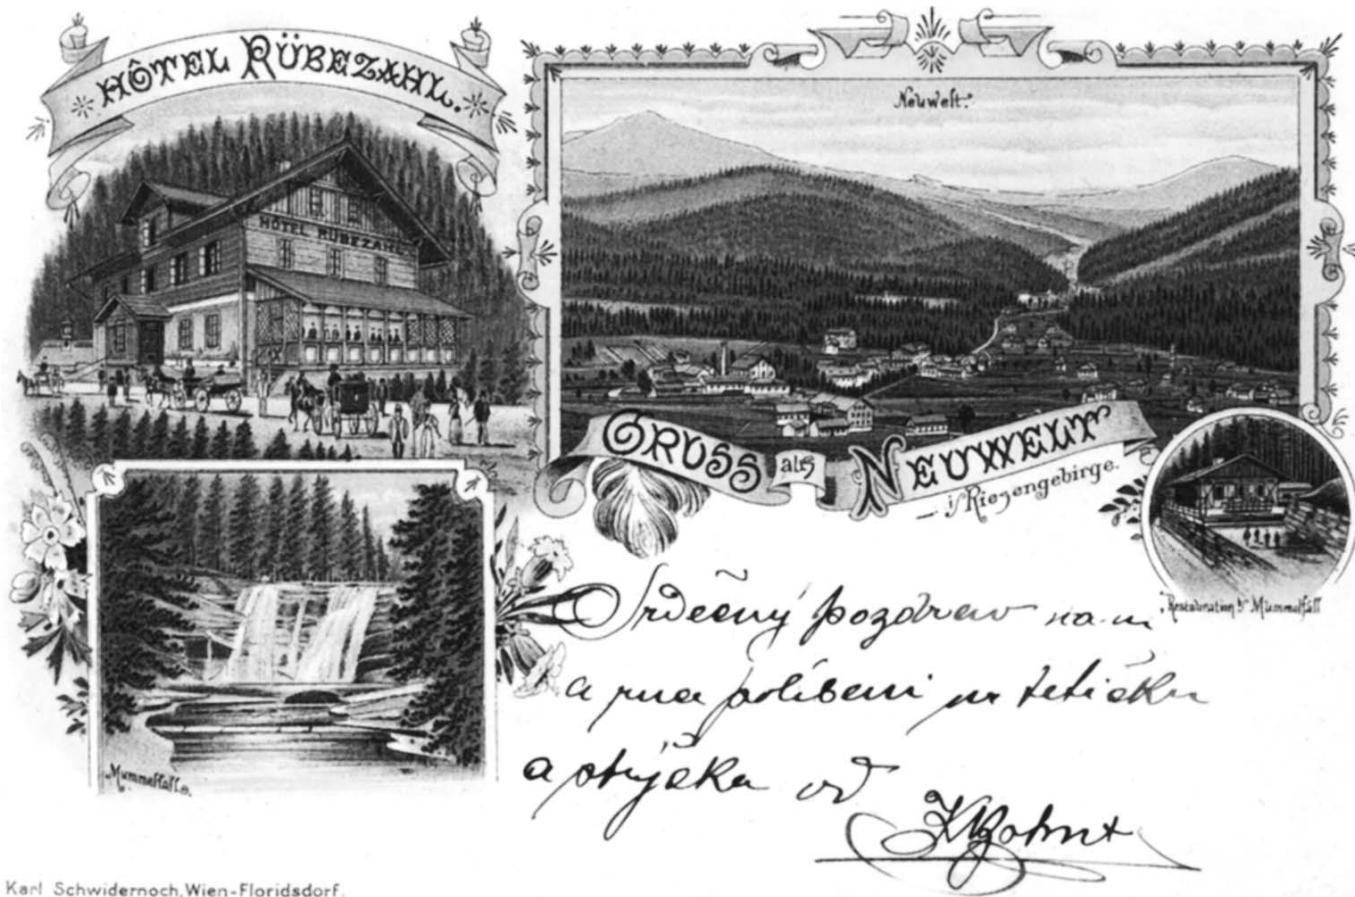 HÔTEL RÜBEZAHL.
HÔTEL RÜBEZAHL
Neuwelt.
GRUSS aus NEUWELT
i/Riesengebirge.
Restauration b/ Mummelfall
Mummelfälle.
Srdečný pozdrav
a políbení tetičku
a strýčka od
Karl Schwidernoch, Wien-Floridsdorf.